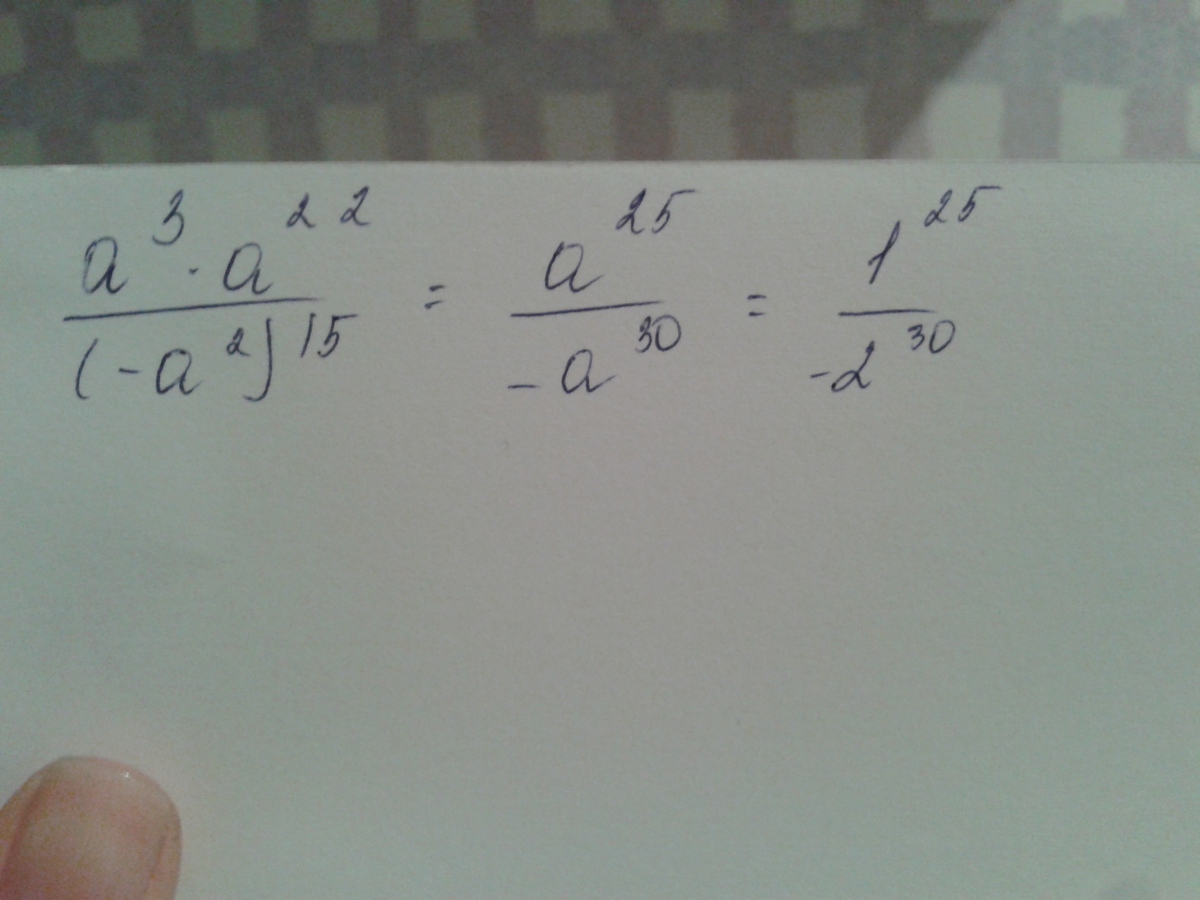 a³ · a²² / (-a²)¹⁵ = a²⁵ / -a³⁰ = 1²⁵ / -2³⁰